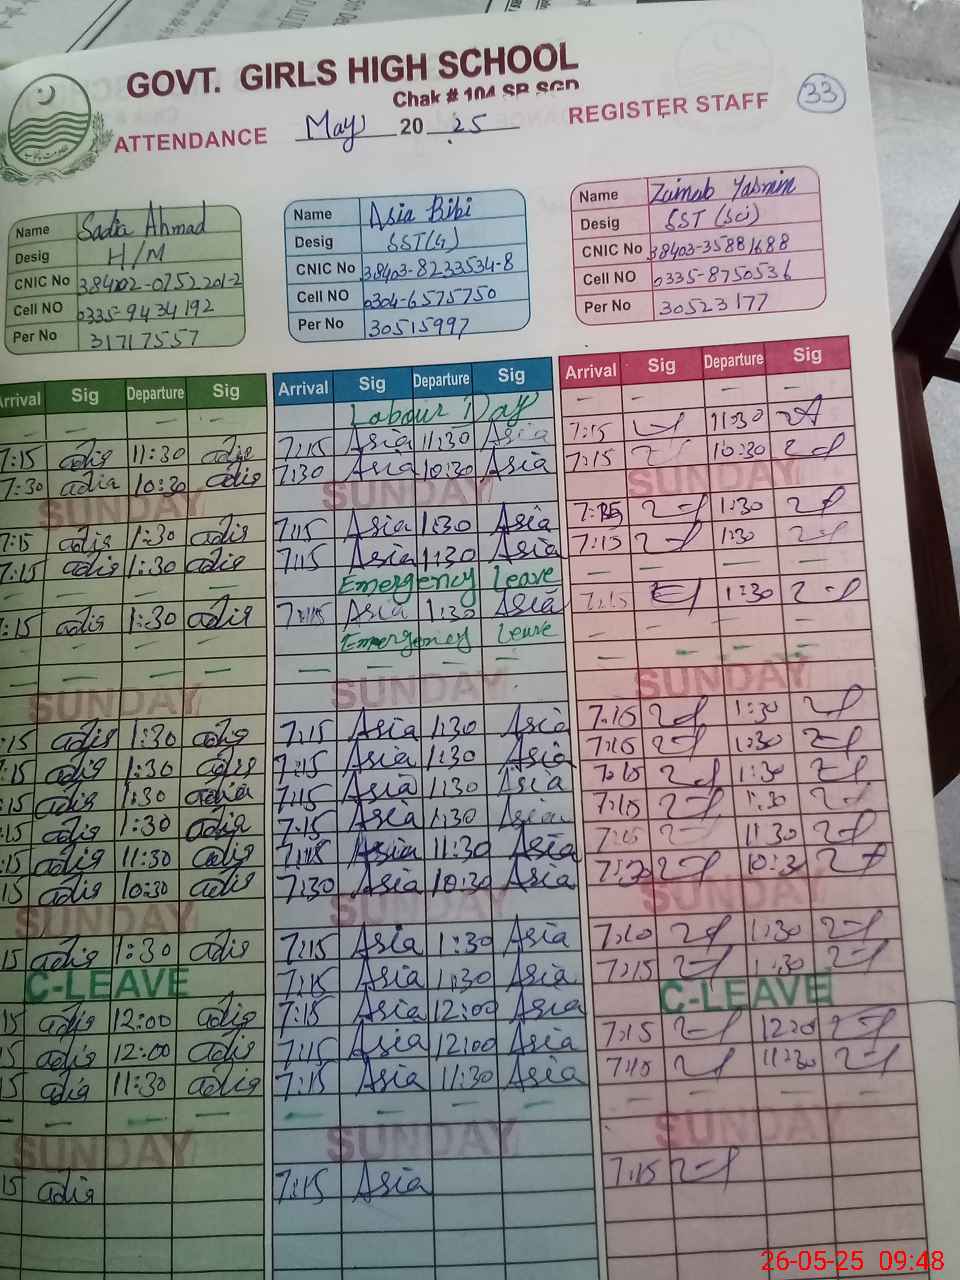 GOVT. GIRLS HIGH SCHOOL
Chak # 104 SB SGD
ATTENDANCE May 20 25 REGISTER STAFF 33
Name Sadia Ahmad
Desig H/M
CNIC No 38402-0752201-2
Cell NO 0335-9434192
Per No 31717557
Name Asia Bibi
Desig SST(G)
CNIC No 38403-8233534-8
Cell NO 0304-6575750
Per No 30515997
Name Zainab Yasmin
Desig SST (Sci)
CNIC No 38403-35881688
Cell NO 0335-8750536
Per No 30523177
Arrival Sig Departure Sig
7:15 11:30
7:30 10:30
SUNDAY
7:15 1:30
7:15 1:30
:15 1:30
SUNDAY
:15 1:30
:15 1:30
:15 1:30
:15 1:30
:15 11:30
15 10:30
SUNDAY
15 1:30
C-LEAVE
15 12:00
15 12:00
15 11:30
SUNDAY
15
Arrival Sig Departure Sig
Labour Day
7:15 Asia 11:30 Asia
7:30 Asia 10:30 Asia
SUNDAY
7:15 Asia 1:30 Asia
7:15 Asia 1:30 Asia
Emergency Leave
7:15 Asia 1:30 Asia
Emergency Leave
SUNDAY
7:15 Asia 1:30 Asia
7:15 Asia 1:30 Asia
7:15 Asia 1:30 Asia
7:15 Asia 1:30 Asia
7:15 Asia 11:30 Asia
7:30 Asia 10:30 Asia
SUNDAY
7:15 Asia 1:30 Asia
7:15 Asia 1:30 Asia
7:15 Asia 12:00 Asia
7:15 Asia 12:00 Asia
7:15 Asia 11:30 Asia
SUNDAY
7:15 Asia
Arrival Sig Departure Sig
7:15 11:30
7:15 10:30
SUNDAY
7:15 1:30
7:15 1:30
7:15 1:30
SUNDAY
7:15 1:30
7:15 1:30
7:15 1:30
7:15 1:30
7:15 11:30
7:30 10:30
SUNDAY
1:30
7:15 1:30
C-LEAVE
7:15
7:15 11:30
SUNDAY
7:15
26-05-25 09:48